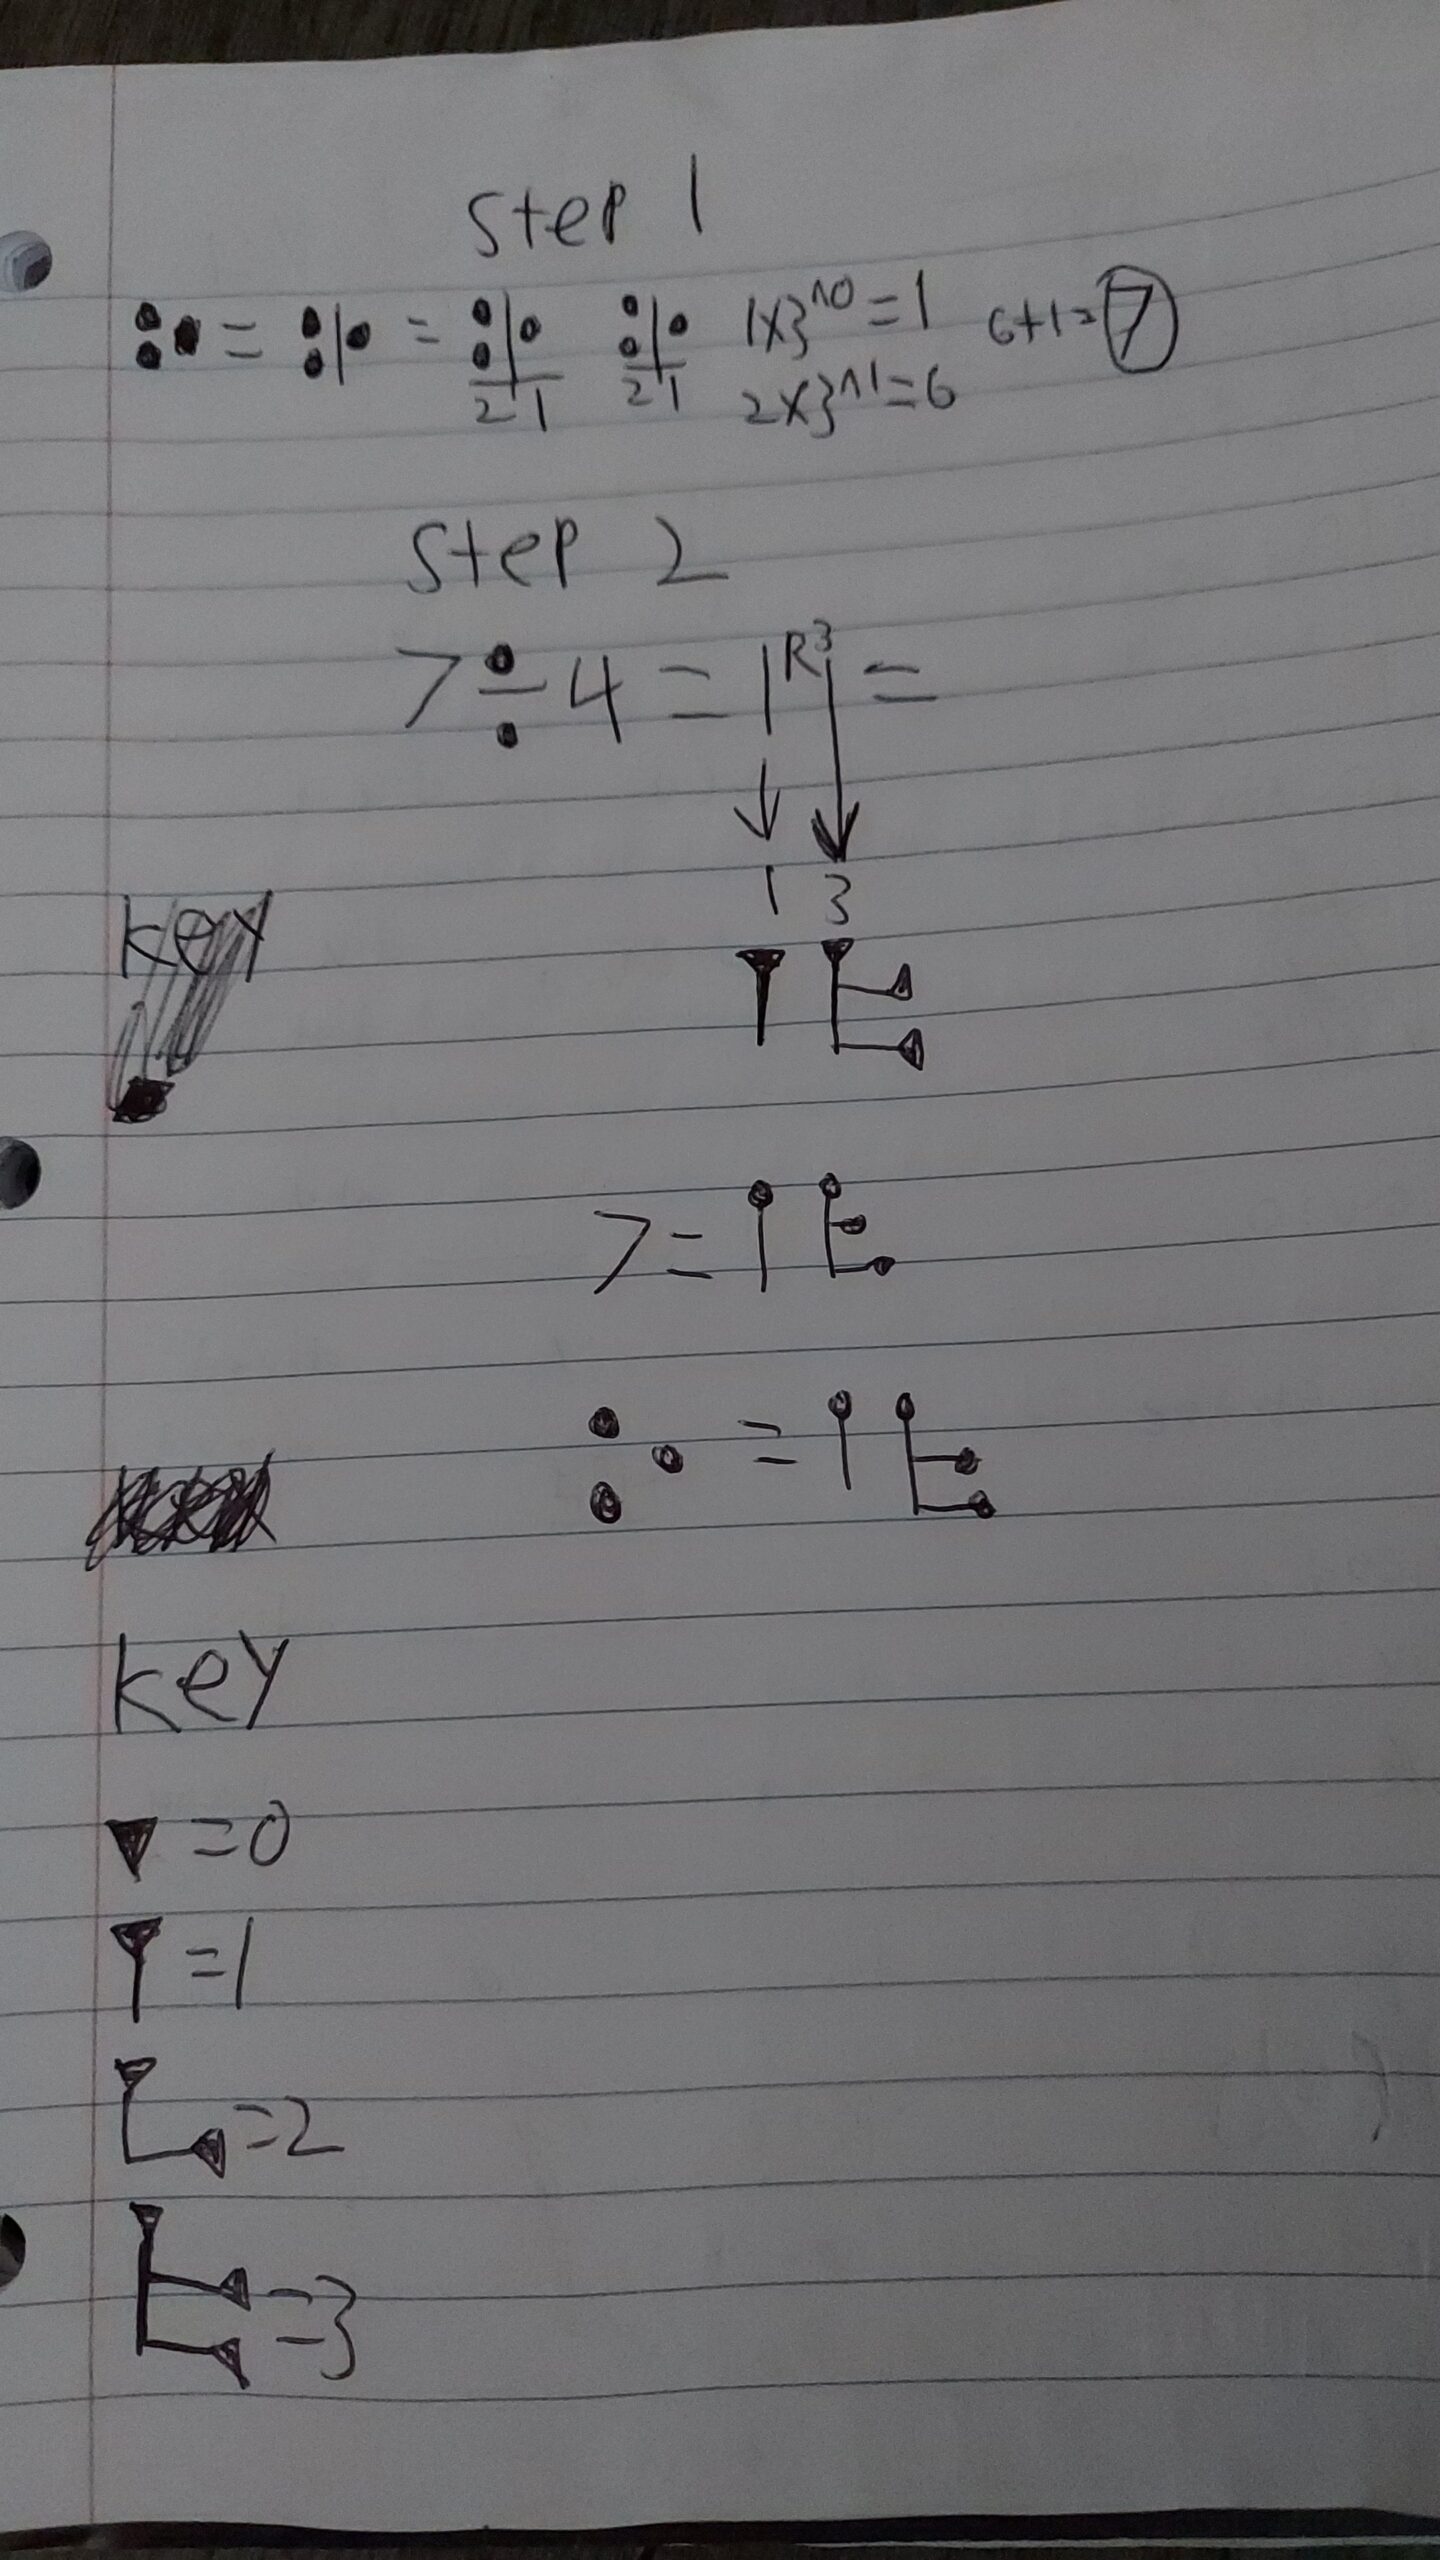 Step 1
= = 21 21 1x3^0=1 6+1=7
2x3^1=6
Step 2
7÷4=1R3=
1 3
key
7=
=
key
=0
=1
=2
=3